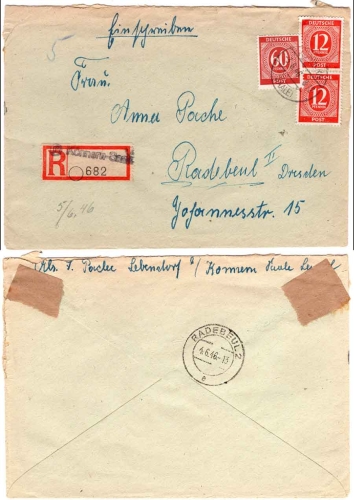 Einschreiben
5
Frau
Anna Pache
Radebeul II
Dresden
Johannesstr. 15
DEUTSCHE
60
POST
DEUTSCHE
12
POST
DEUTSCHE
12
POST
R
Könnern-Saale
682
5/6.46
Pache Lebendorf ü/ Könnern Saale
RADEBEUL 2
4.6.46-13
e